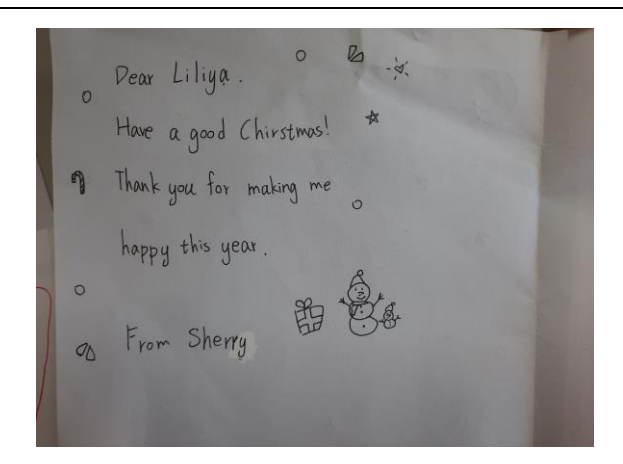 Dear Liliya.
Have a good Chirstmas!
Thank you for making me
happy this year.
From Sherry